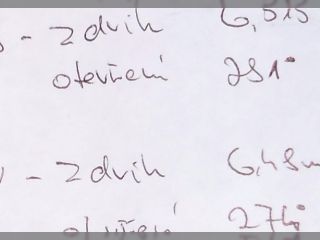 - zdvih 6,515
otevření 281°
- zdvih 6,48m
otevření 274°